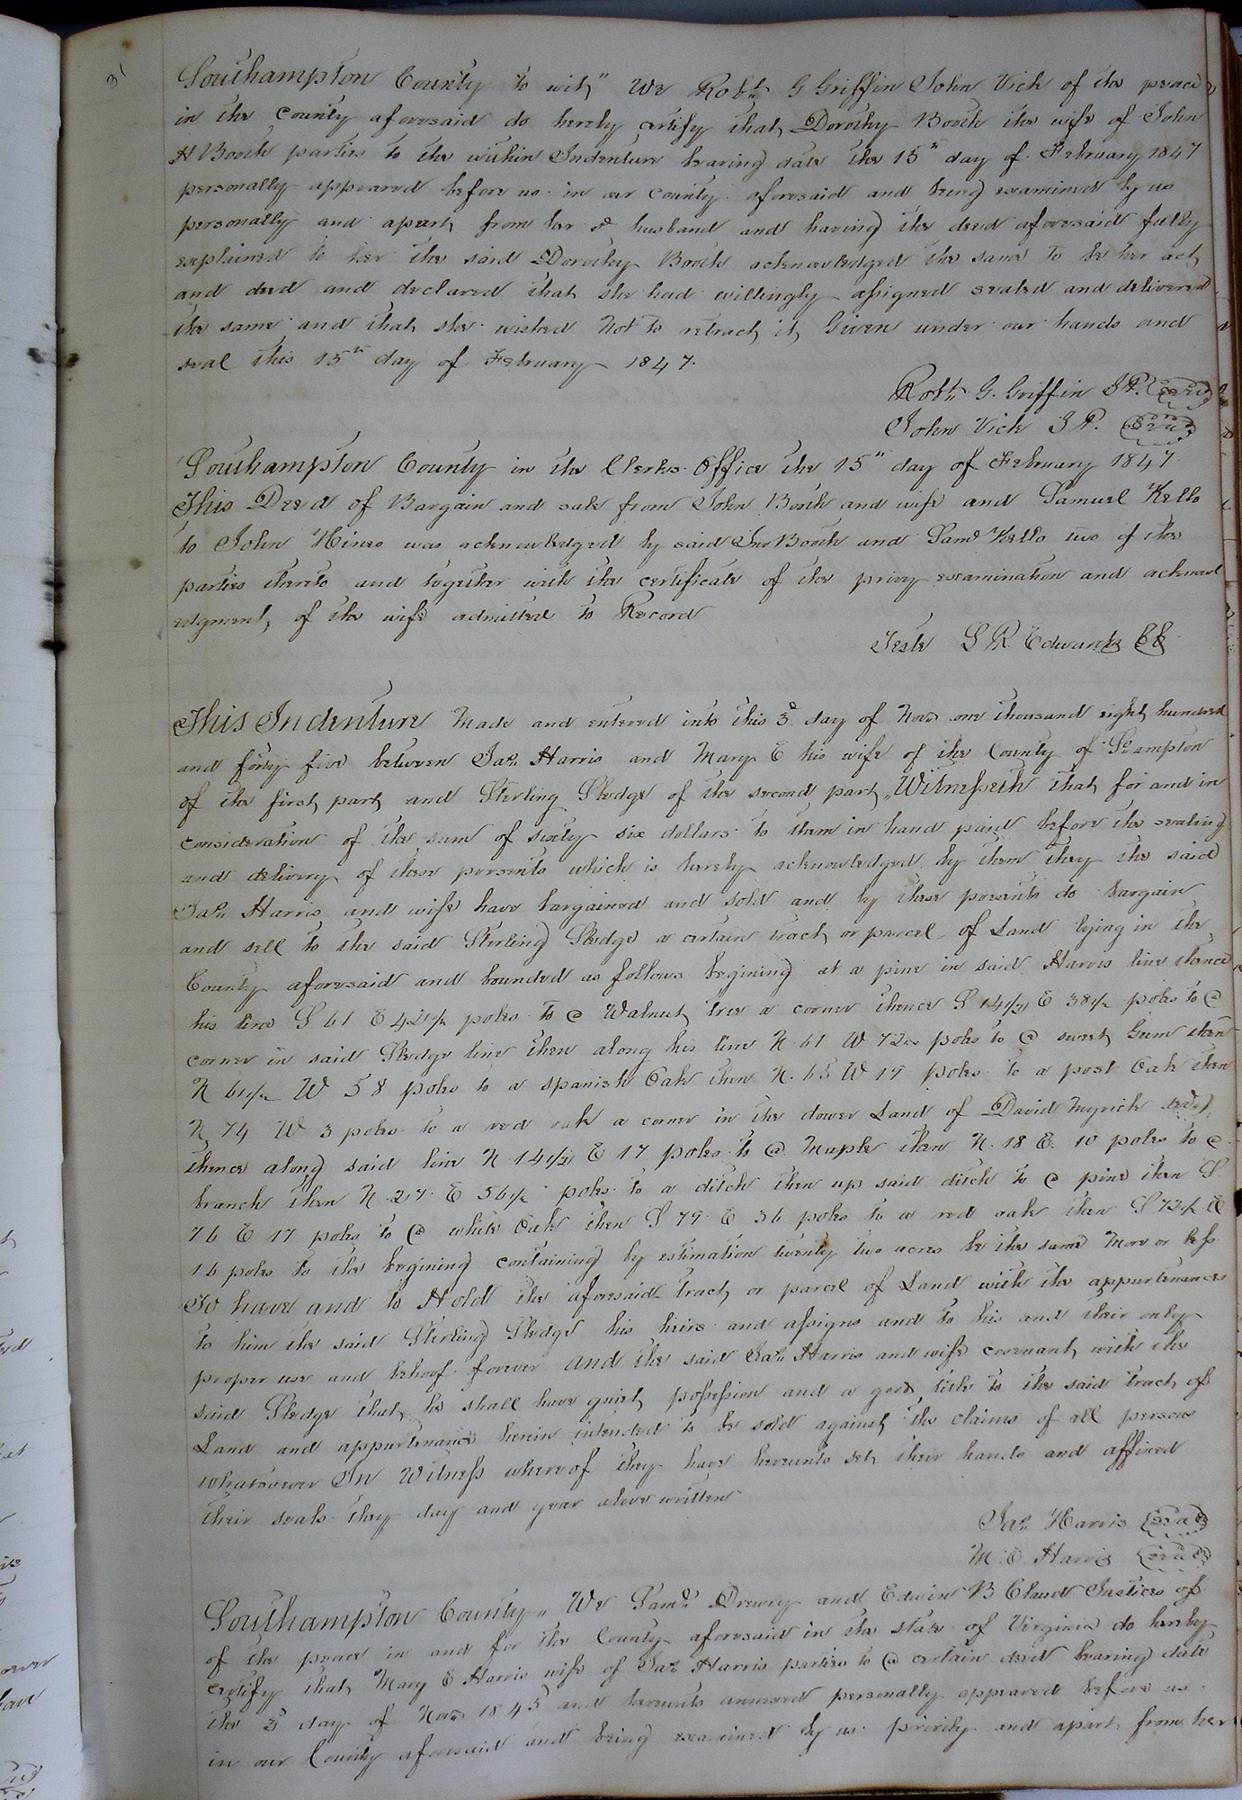 31
Southampton County to wit, " We Robt. G Griffin John Vick of the peace
in the County aforesaid do hereby certify that Dorothy Booth the wife of John
H Booth parties to the within Indenture bearing date the 15th day of February 1847
personally appeared before us in our county aforesaid and being examined by us
personally and apart from her sd husband and having the deed aforesaid fully
explained to her the said Dorothy Booth acknowledged the same to be her act
and deed and declared that she had willingly assigned sealed and delivered
the same and that she wished not to retract it, Given under our hands and
seal this 15th day of February 1847.
Robt. G. Griffin J.P. (Seal)
John Vick J.P. (Seal)
Southampton County in the Clerks Office the 15th day of February 1847
This Deed of Bargain and sale from John Booth and wife and Samuel Kello
to John Hines was acknowledged by said Jno Booth and Saml Kello two of the
parties thereto and together with the certificate of the privy examination and acknowl
edgment, of the wife admitted to Record
Teste L R Edwards CC
This Indenture made and entered into this 3d day of Nov. one thousand eight hundred
and forty five between Jas. Harris and Mary E his wife of the County of So.ampton
of the first part and Sterling Sledge of the second part, Witnesseth that for and in
consideration of the sum of sixty six dollars to them in hand paid before the sealing
and delivery of these persents which is hereby acknowledged by them they the said
Jas. Harris and wife have bargained and sold and by these presents do bargain
and sell to the said Sterling Sledge a certain tract or parcel of Land lying in the
County aforesaid and bounded as follows begining at a pine in said Harris line thence
his line S 61 E 42 1/2 poles to a Walnut tree a corner thence S 14 1/2 E 38 1/2 poles to a
corner in said Sledge line then along his line N. 61 W 72 poles to a sweet Gum then
N 61 1/2 W 58 poles to a spanish Oak then N. 65 W 17 poles to a post Oak then
N 74 W 3 poles to a red oak a corner in the dower Land of David Myrick
thence along said line N. 14 1/2 E 17 poles to a Maple then N. 18 E. 10 poles to a
branch then N. 27 E 56 1/2 poles to a ditch then up said ditch to a pine then S
76 E 17 poles to a white Oak then S 79 E 36 poles to a red oak then S 72 1/2 E
16 poles to the begining containing by estimation twenty two acres be the same more or less
To have and to Hold the aforesaid tract or parcel of Land with the appurtenances
to him the said Sterling Sledge his heirs and assigns and to his and their only
proper use and behoof forever and the said Jas. Harris and wife covenant with the
said Sledge that he shall have quiet possession and a good title to the said tract of
Land and appurtenance herein intended to be sold against the claims of all persons
whatsoever In Witness whereof they have hereunto set their hands and affixed
their seals they day and year above written
Jas. Harris (Seal)
M. E. Harris (Seal)
Southampton County " We Saml. Drewry and Edwin B Claud Justices of
of the peace in and for the County aforesaid in the state of Virginia do hereby
certify that Mary E Harris wife of Jas Harris parties to a certain deed bearing date
the 3d day of Nov. 1845 and hereunto annexed personally appeared before us
in our County aforesaid and being examined by us privily and apart from her